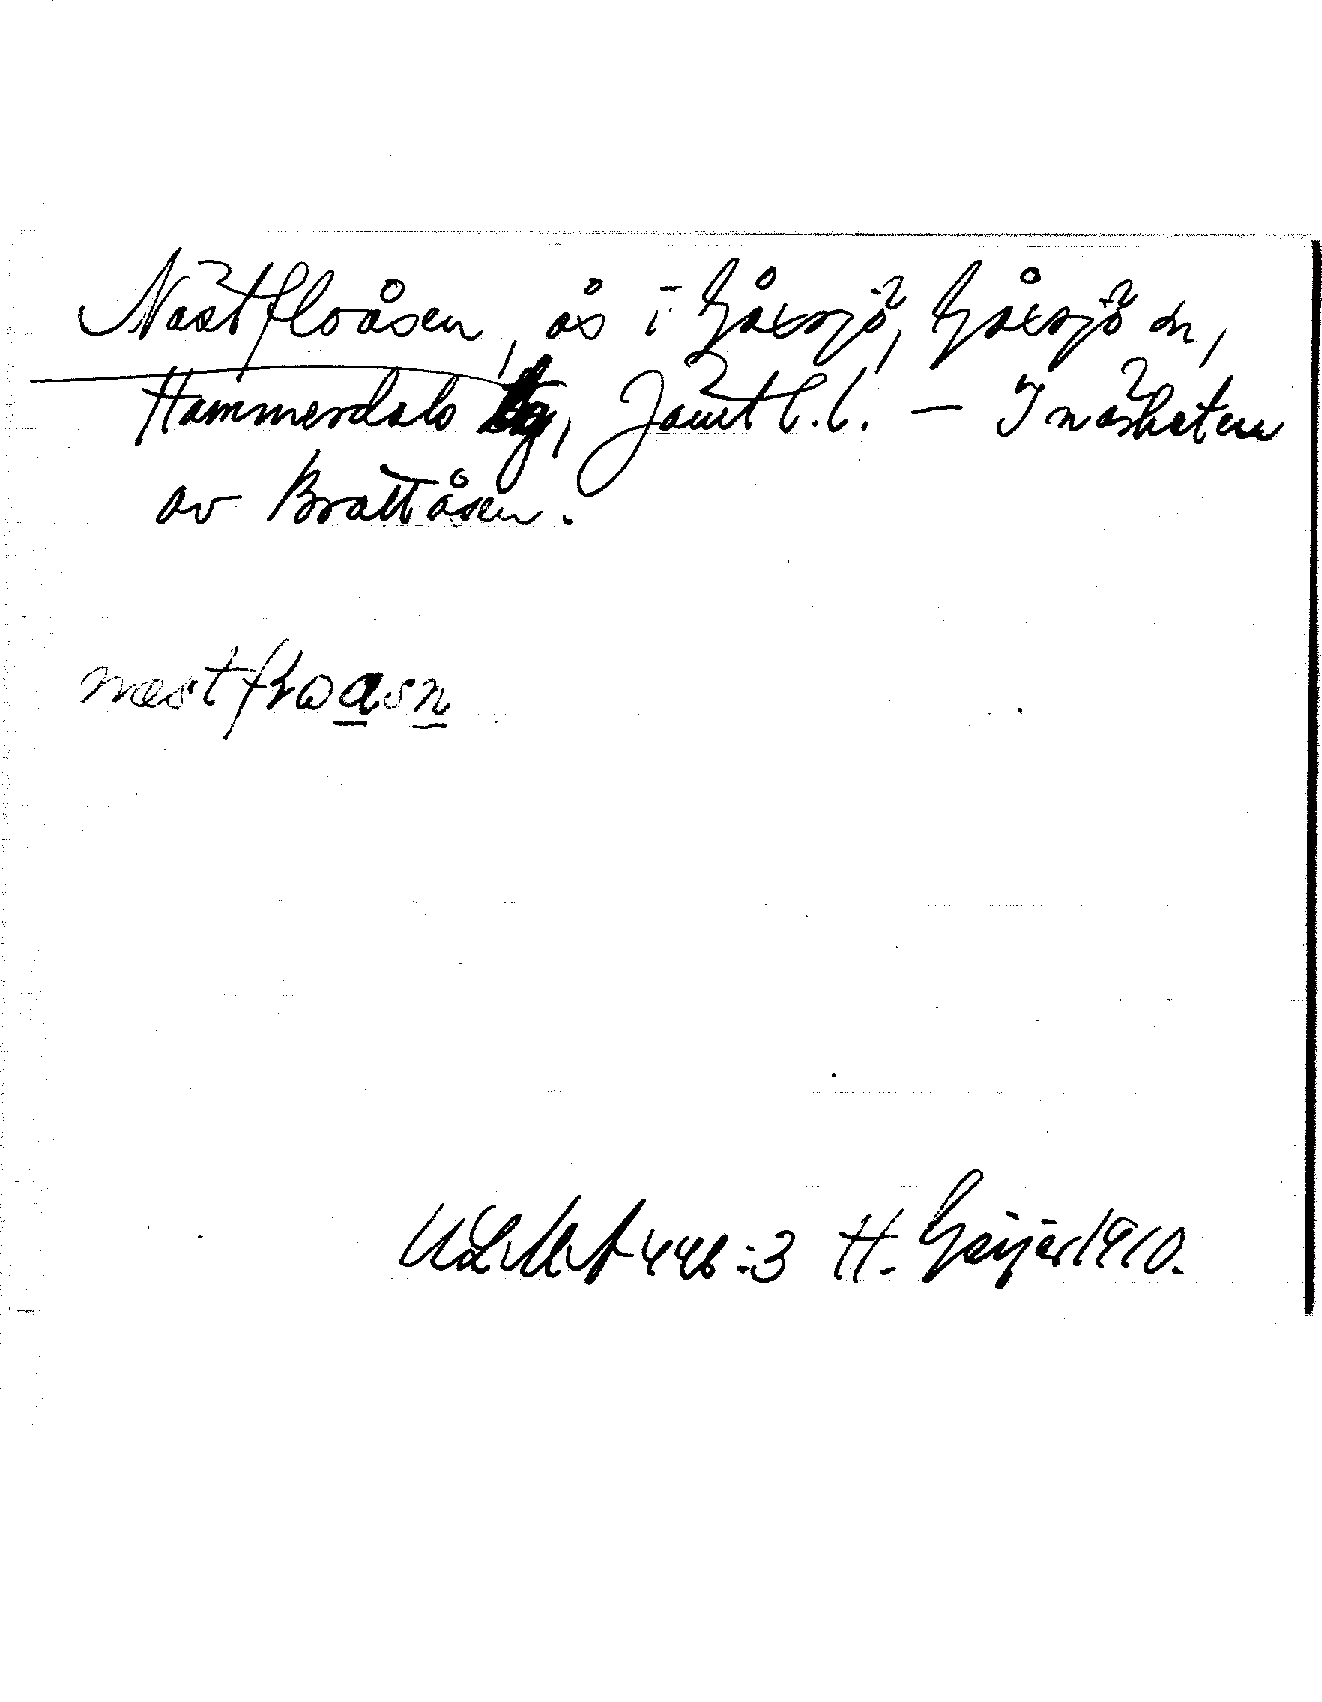 Nästfloåsen, ås i Gåxsjö, Gåxsjö sn,
Hammerdals tg, Jämtl. l. – I närheten
av Brattåsen.
næstfloasn
ULMA 446:3 H. Geijer 1910.